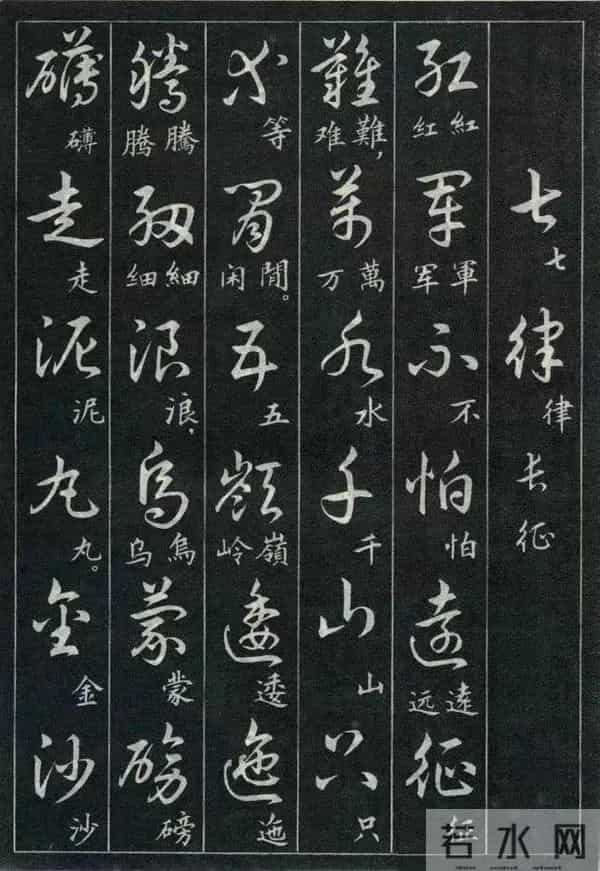 七律长征
七律
紅軍不怕遠征
紅红 軍军 不 怕 遠远 征
難萬水千山只
難,难 萬万 水 千 山 只
等閒五嶺逶迤
等 閒。闲 五 嶺岭 逶 迤
騰細浪烏蒙磅
騰腾 細细 浪, 烏乌 蒙 磅
礴走泥丸金沙
礴 走 泥 丸。 金 沙
若水网